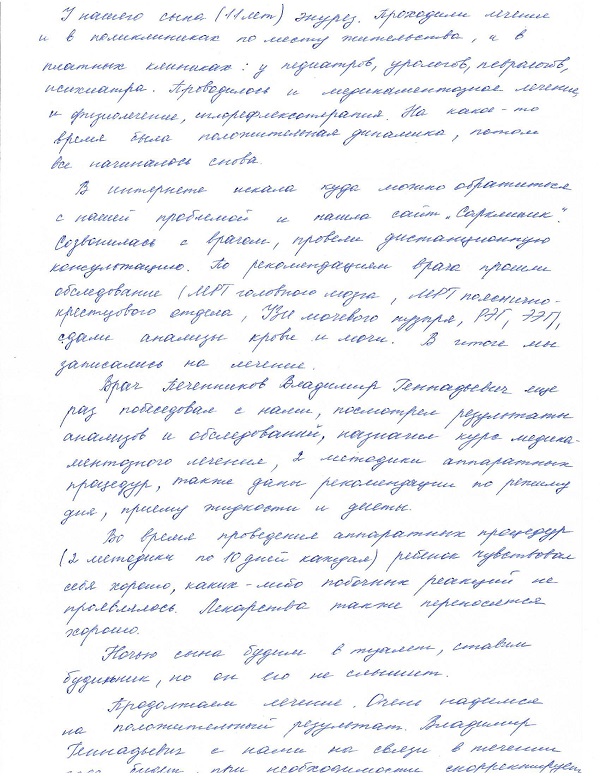 У нашего сына (11 лет) энурез. Проходили лечение
и в поликлиниках по месту жительства, и в
платных клиниках: у педиатров, урологов, неврологов,
психиатра. Проводилось и медикаментозное лечение,
и физиолечение, иглорефлексотерапия. На какое-то
время была положительная динамика, потом
все начиналось снова.
В интернете искала куда можно обратиться
с нашей проблемой и нашла сайт „Сарклиник".
Созвонилась с врачом, провели дистанционную
консультацию. По рекомендациям врача прошли
обследование (МРТ головного мозга, МРТ пояснично-
крестцового отдела, УЗИ мочевого пузыря, РЭГ, ЭЭГ),
сдали анализы крови и мочи. В итоге мы
записались на лечение.
Врач Печенников Владимир Геннадьевич еще
раз побеседовал с нами, посмотрел результаты
анализов и обследований, назначил курс медика-
ментозного лечения, 2 методики аппаратных
процедур, также даны рекомендации по режиму
дня, приему жидкости и диеты.
Во время проведения аппаратных процедур
(2 методики по 10 дней каждая) ребенок чувствовал
себя хорошо, каких-либо побочных реакций не
проявлялось. Лекарства также переносятся
хорошо.
Ночью сына будим в туалет, ставим
будильник, но он его не слышит.
Продолжаем лечение. Очень надимся
на положительный результат. Владимир
Геннадьевич с нами на связи в течении
при необходимости скорректирует